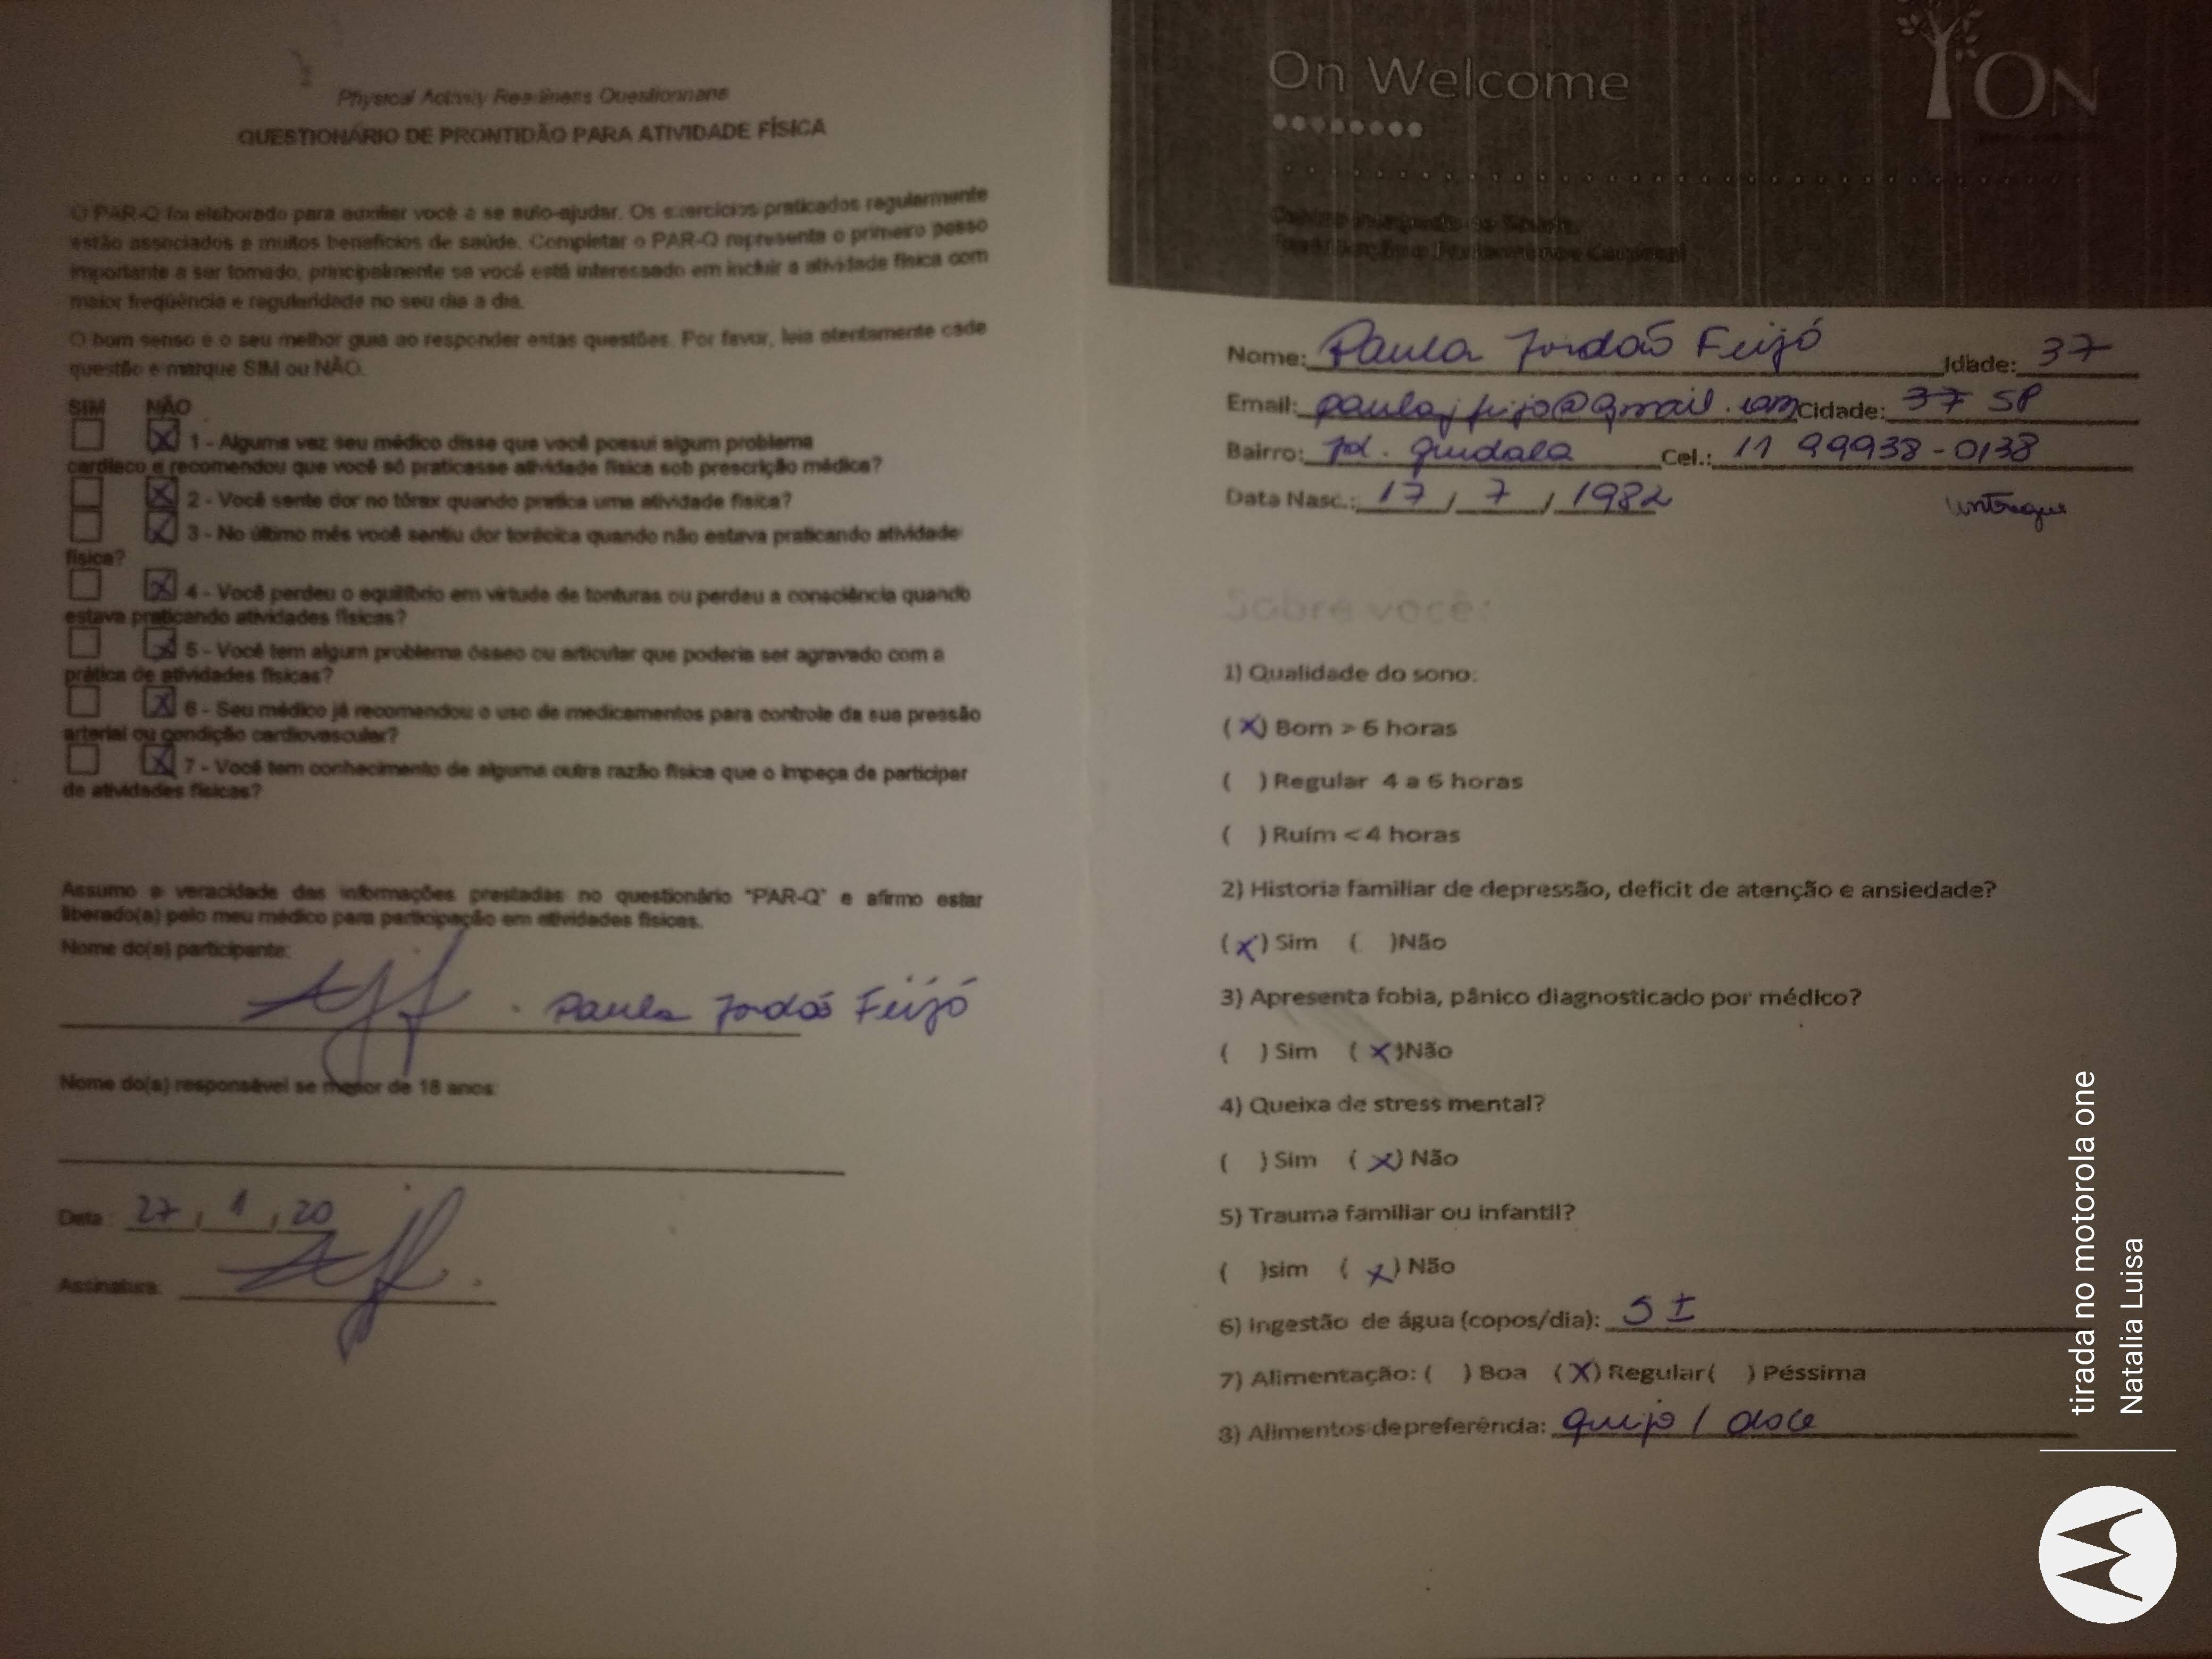 Physical Activity Readiness Questionnaire
QUESTIONÁRIO DE PRONTIDÃO PARA ATIVIDADE FÍSICA
O PAR-Q foi elaborado para auxiliar você a se auto-ajudar. Os exercícios praticados regularmente
estão associados a muitos benefícios de saúde. Completar o PAR-Q representa o primeiro passo
importante a ser tomado, principalmente se você está interessado em incluir a atividade física com
maior freqüência e regularidade no seu dia a dia.
O bom senso é o seu melhor guia ao responder estas questões. Por favor, leia atentamente cada
questão e marque SIM ou NÃO.
SIM NÃO
X 1 - Alguma vez seu médico disse que você possui algum problema
cardíaco e recomendou que você só praticasse atividade física sob prescrição médica?
X 2 - Você sente dor no tórax quando pratica uma atividade física?
X 3 - No último mês você sentiu dor torácica quando não estava praticando atividade
física?
X 4 - Você perdeu o equilíbrio em virtude de tonturas ou perdeu a consciência quando
estava praticando atividades físicas?
X 5 - Você tem algum problema ósseo ou articular que poderia ser agravado com a
prática de atividades físicas?
X 6 - Seu médico já recomendou o uso de medicamentos para controle da sua pressão
arterial ou condição cardiovascular?
X 7 - Você tem conhecimento de alguma outra razão física que o impeça de participar
de atividades físicas?
Assumo a veracidade das informações prestadas no questionário "PAR-Q" e afirmo estar
liberado(a) pelo meu médico para participação em atividades físicas.
Nome do(a) participante:
Paula Jordão Feijó
Nome do(a) responsável se menor de 18 anos:
Data: 27, 1, 20
Assinatura:
On Welcome
ON
Nome: Paula Jordão Feijó Idade: 37
Email: paulajfeijo@gmail.com Cidade: 37 SP
Bairro: Jd. Guedala Cel.: 11 99938-0138
Data Nasc.: 17, 7, 1982
entregue
Sobre você:
1) Qualidade do sono:
(X) Bom > 6 horas
( ) Regular 4 a 6 horas
( ) Ruím < 4 horas
2) Historia familiar de depressão, deficit de atenção e ansiedade?
(X) Sim ( )Não
3) Apresenta fobia, pânico diagnosticado por médico?
( ) Sim (X)Não
4) Queixa de stress mental?
( ) Sim (X) Não
5) Trauma familiar ou infantil?
( )sim (X) Não
6) Ingestão de água (copos/dia): 5 ±
7) Alimentação: ( ) Boa (X) Regular( ) Péssima
8) Alimentos de preferência: queijo / doce
tirada no motorola one
Natalia Luisa